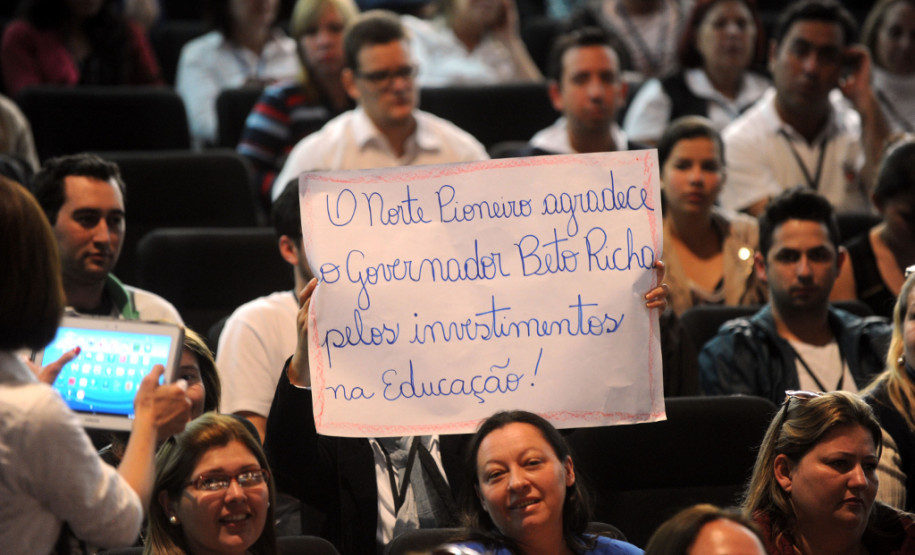 O Norte Pioneiro agradece
o Governador Beto Richa
pelos investimentos
na Educação!